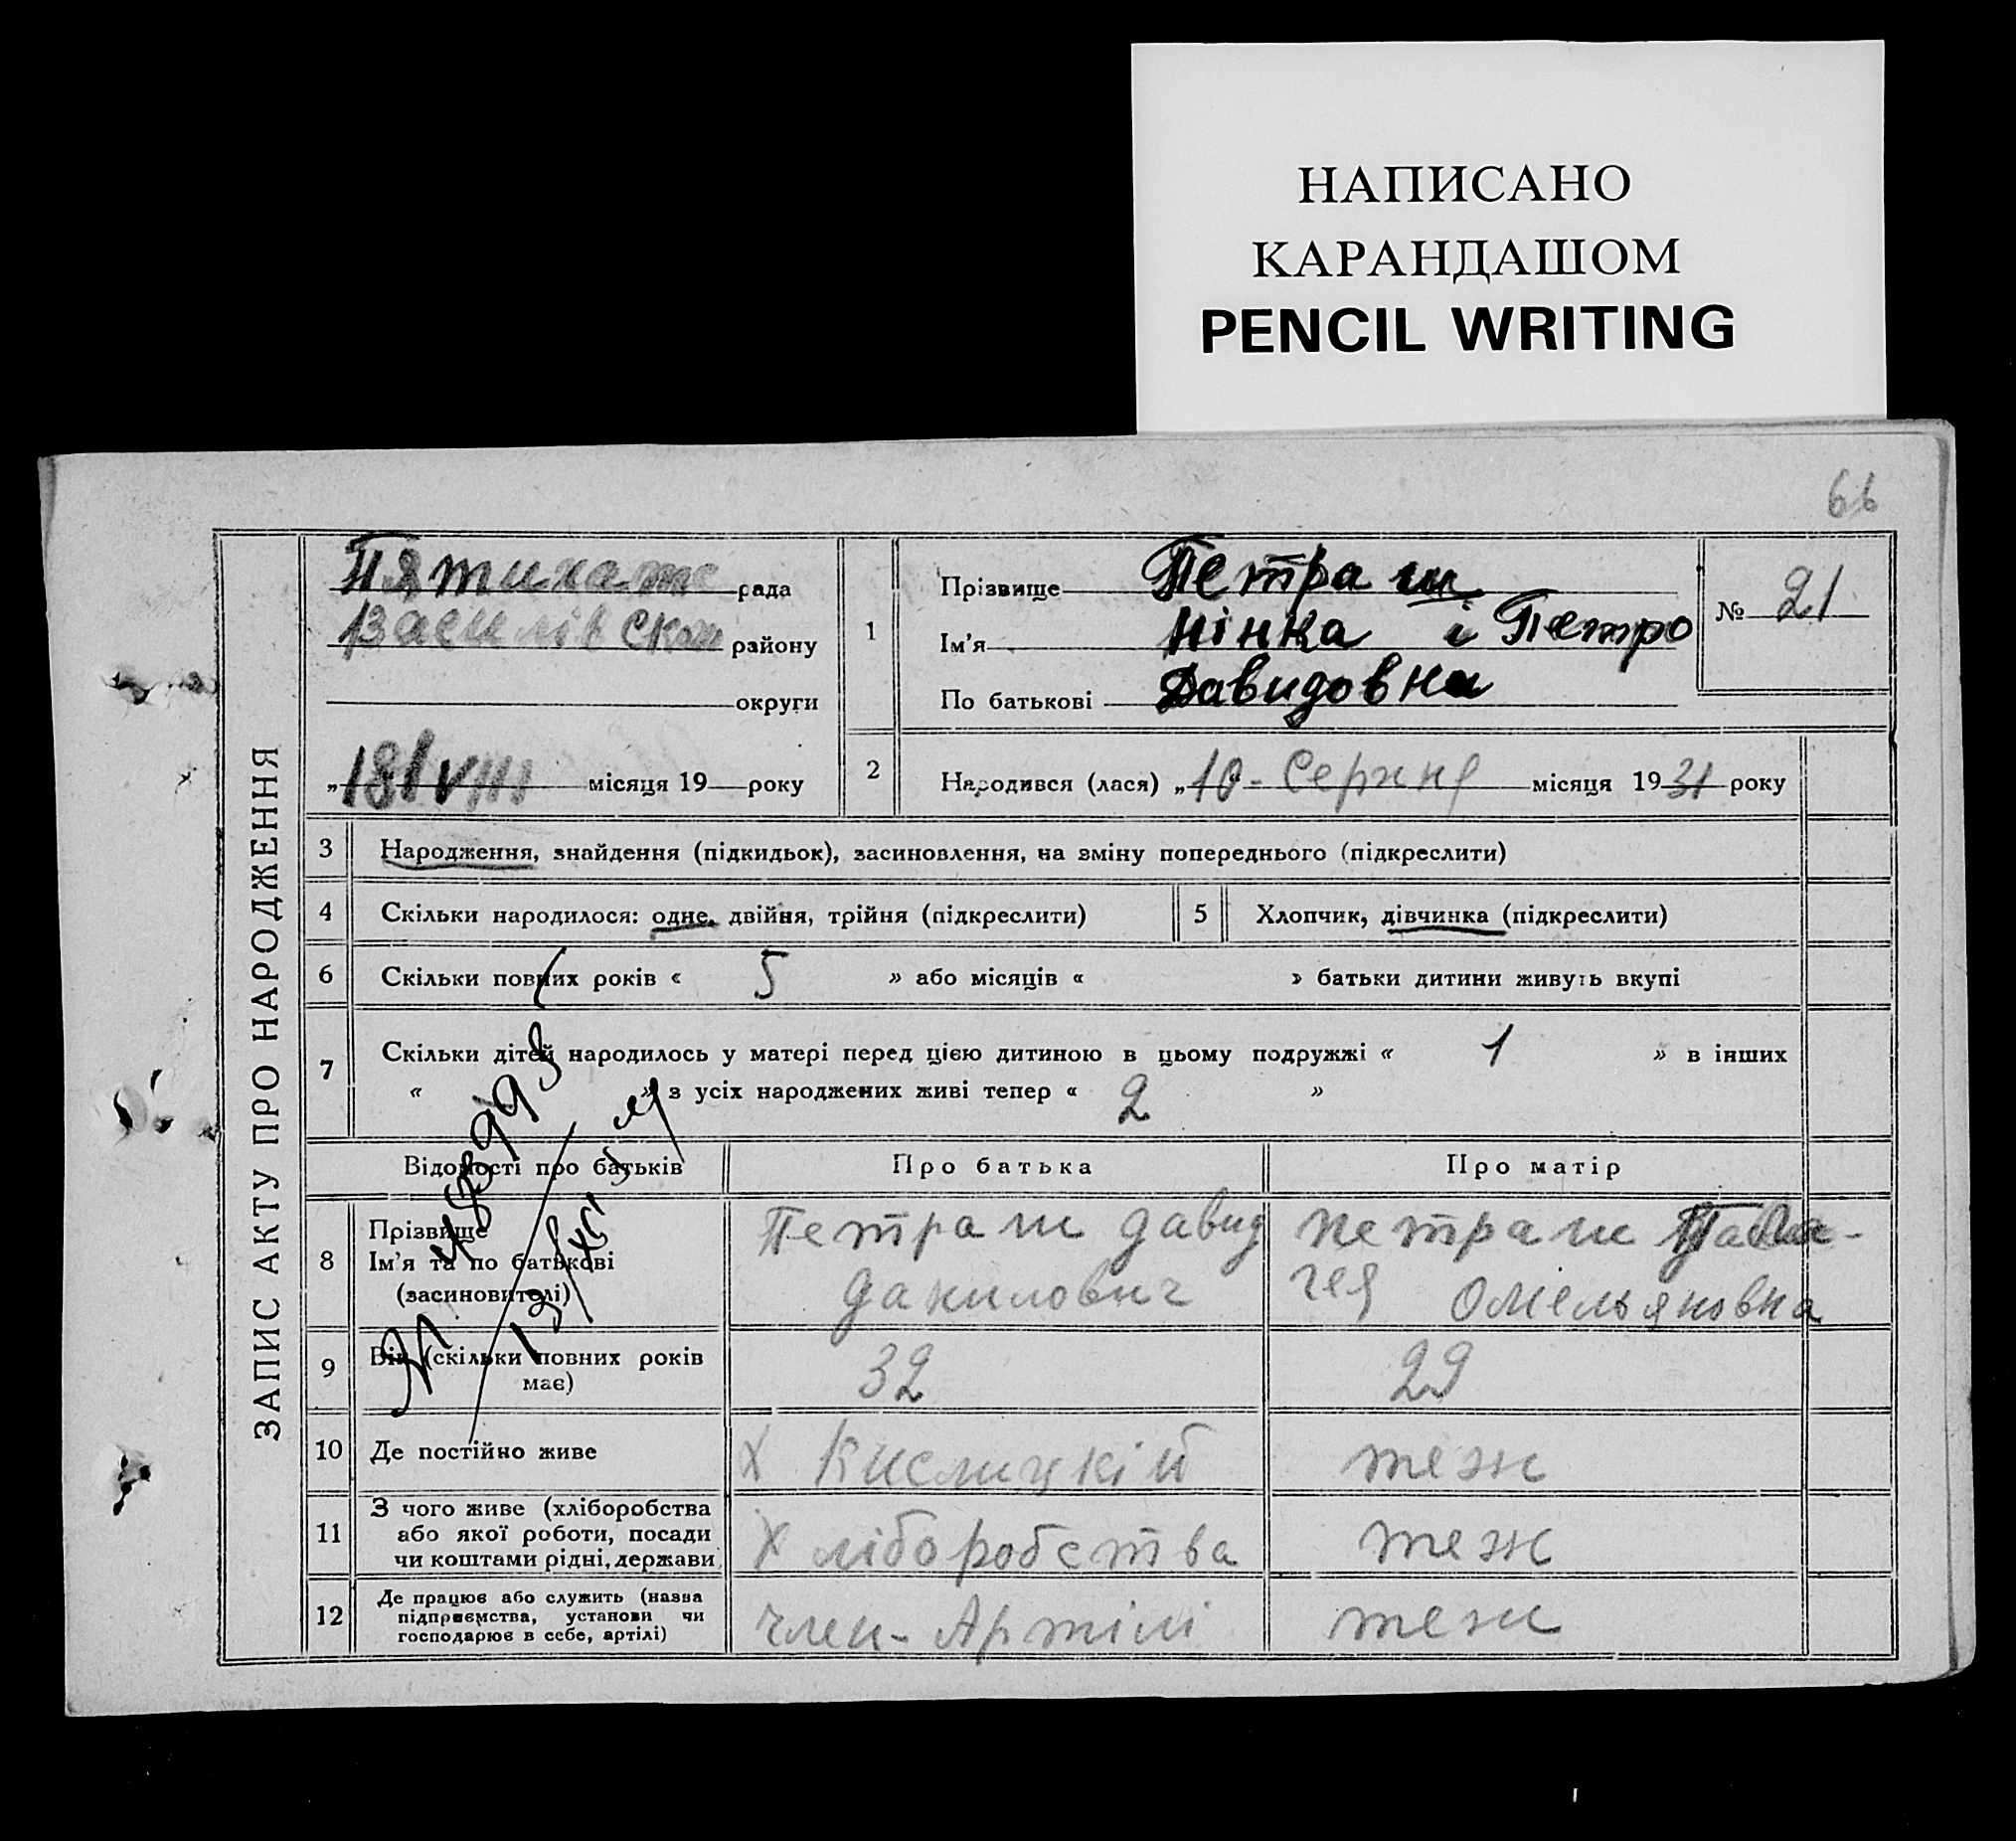 НАПИСАНО
КАРАНДАШОМ
PENCIL WRITING
66
ЗАПИС АКТУ ПРО НАРОДЖЕННЯ
Пятихате рада
Василівськ району
округи
„18/VIII місяця 19 року
1
Прізвище Петраш
Ім'я Нінка і Петро
По батькові Давидовна
№ 21
2 Народився (лася) „10 - Серпня місяця 1931 року
3 Народження, знайдення (підкидьок), засиновлення, на зміну попереднього (підкреслити)
4 Скільки народилося: одне, двійня, трійня (підкреслити) 5 Хлопчик, дівчинка (підкреслити)
6 Скільки повних років « 5 » або місяців « » батьки дитини живуть вкупі
7 Скільки дітей народилось у матері перед цією дитиною в цьому подружжі « 1 » в інших
« » з усіх народжених живі тепер « 2 »
Відомості про батьків Про батька Про матір
8 Прізвище
Ім'я та по батькові
(засиновителі)
Петраш Давид
Данилович
Петраш Пала-
гея Омельяновна
9 Вік (скільки повних років
має)
32 29
10 Де постійно живе Х Кислицкій теж
11 З чого живе (хліборобства
або якої роботи, посади
чи коштами рідні, держави
Хліборобства теж
12 Де працює або служить (назва
підприємства, установи чи
господарює в себе, артілі)
член - Артілі теж